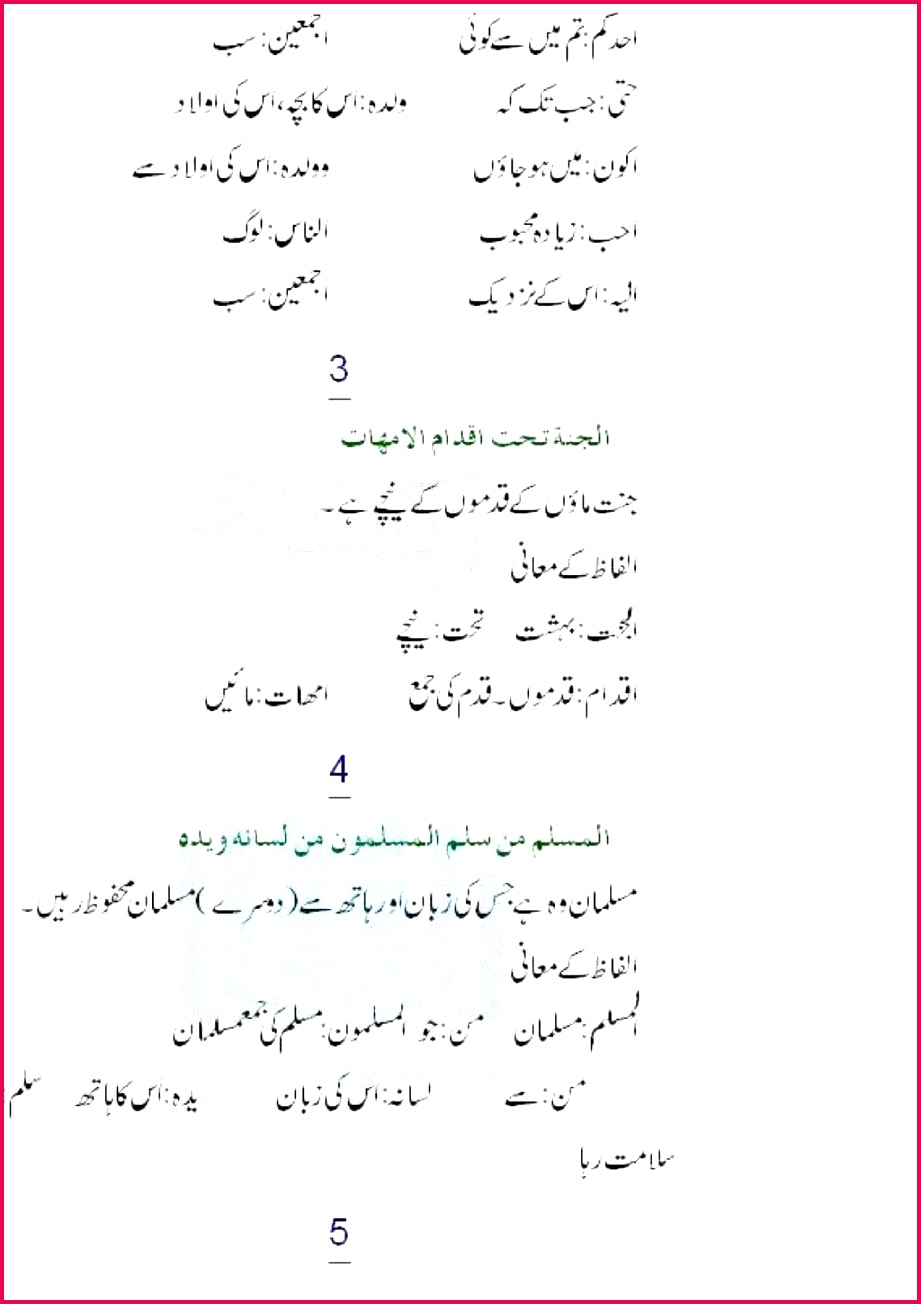 احدکم: تم میں سے کوئی اجمعین: سب
حتی: جب تک کہ ولدہ: اس کا بچہ، اس کی اولاد
اکون: میں ہو جاؤں وولدہ: اس کی اولاد سے
احب: زیادہ محبوب الناس: لوگ
الیہ: اس کے نزدیک اجمعین: سب
3
الجنة تحت اقدام الامهات
جنت ماؤں کے قدموں کے نیچے ہے۔
الفاظ کے معانی
الجنت: بہشت تحت: نیچے
اقدام: قدموں۔ قدم کی جمع امھات: مائیں
4
المسلم من سلم المسلمون من لسانه ويده
مسلمان وہ ہے جس کی زبان اور ہاتھ سے (دوسرے) مسلمان محفوظ رہیں۔
الفاظ کے معانی
المسلم: مسلمان من: جو المسلمون: مسلم کی جمع مسلمان
من: سے لسانہ: اس کی زبان یدہ: اس کا ہاتھ سلم:
سلامت رہا
5